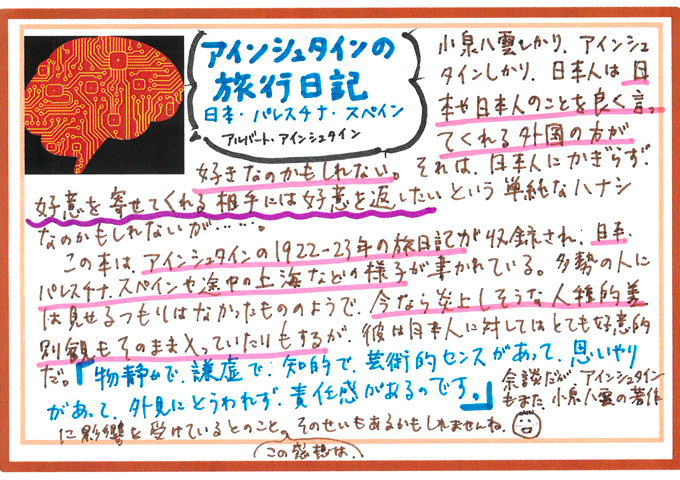 アインシュタインの
旅行日記
日本・パレスチナ・スペイン
アルバート・アインシュタイン
小泉八雲しかり、アインシュ
タインしかり、日本人は日
本や日本人のことを良く言っ
てくれる外国の方が
好きなのかもしれない。それは、日本人にかぎらず、
好意を寄せてくれる相手には好意を返したいという単純なハナシ
なのかもしれないが……。
この本は、アインシュタインの1922-23年の旅日記が収録され、日本、
パレスチナ、スペインや途中の上海などの様子が書かれている。多勢の人に
は見せるつもりはなかったもののようで、今なら炎上しそうな人種的差
別観もそのまま入っていたりもするが、彼は日本人に対してはとても好意的
だ。「物静かで、謙虚で、知的で、芸術的センスがあって、思いやり
があって、外見にとらわれず、責任感があるのです。」
余談だが、アインシュタイン
もまた、小泉八雲の著作
に影響を受けているとのこと。そのせいもあるかもしれませんね。
この感想は、